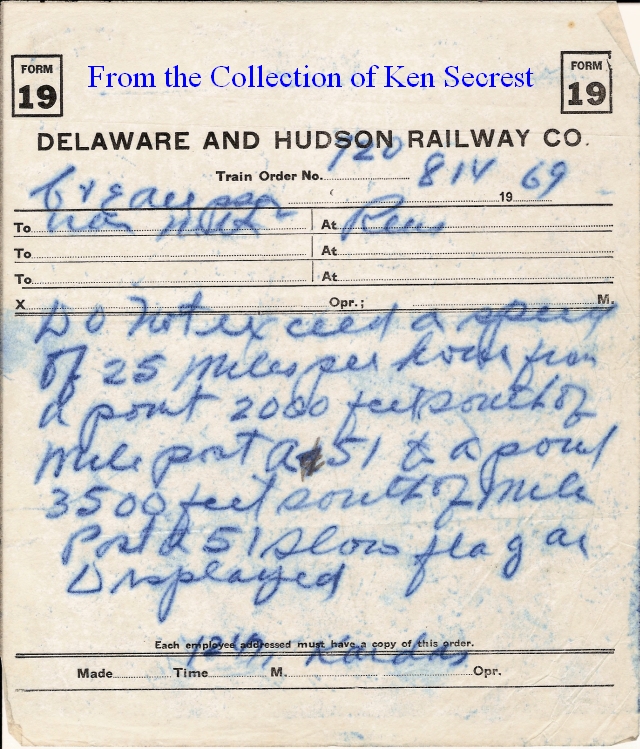 FORM 19
From the Collection of Ken Secrest
FORM 19
DELAWARE AND HUDSON RAILWAY CO.
Train Order No. 720 8 14 19 69
To At Rens
To At
To At
X Opr.; M.
Do Not exceed a speed
of 25 Miles per hour from
a point 2000 feet south of
Mile post A 51 to a point
3500 feet south of Mile
Post A 51 Slow flag are
Displayed
Each employee addressed must have a copy of this order.
Made Time M. Opr.